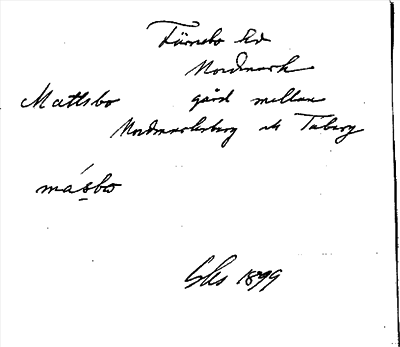 Färnebo hd
Nordmark
Mattsbo gård mellan
Nordmarksberg och Taberg
másbo
1899